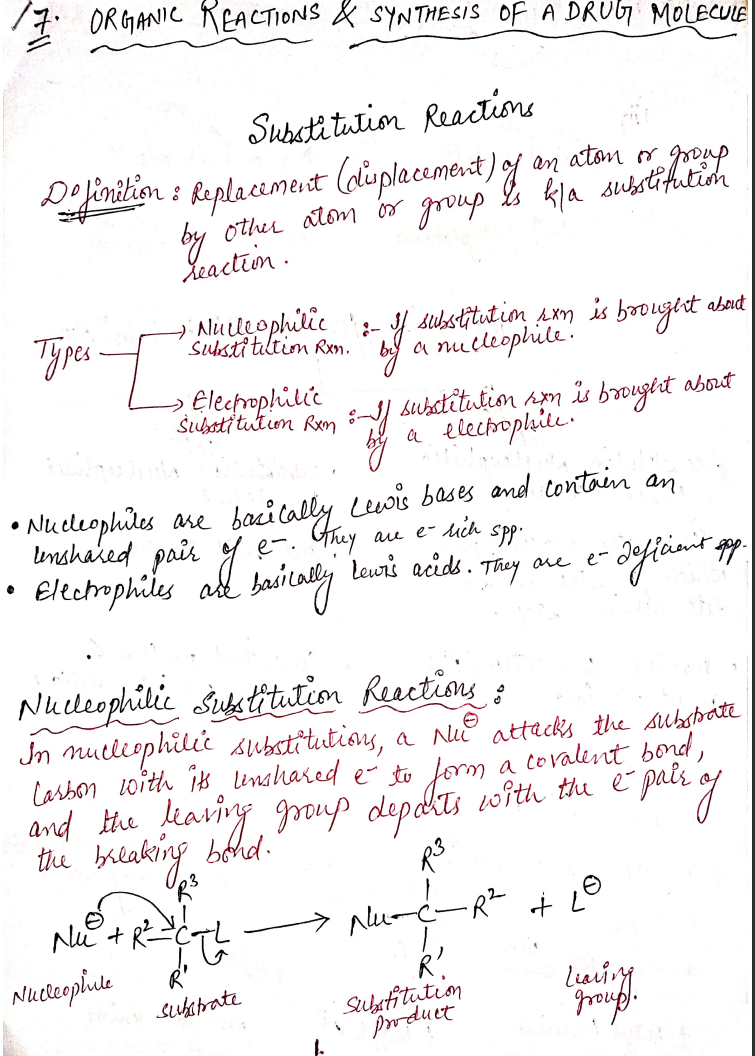 17. ORGANIC REACTIONS & SYNTHESIS OF A DRUG MOLECULE
Substitution Reactions
Definition : Replacement (displacement) of an atom or group
by other atom or group is k/a substitution
reaction.
Types → Nucleophilic :- If substitution rxn is brought about
Substitution Rxn. by a nucleophile.
→ Electrophilic :- If substitution rxn is brought about
Substitution Rxn by a electrophile.
• Nucleophiles are basically Lewis bases and contain an
unshared pair of e-. They are e- rich spp.
• Electrophiles are basically lewis acids. They are e- deficient spp.
Nucleophilic Substitution Reactions :
In nucleophilic substitutions, a Nu⊖ attacks the substrate
carbon with its unshared e- to form a covalent bond,
and the leaving group departs with the e- pair of
the breaking bond.
R³ R³
Nu⊖ + R²-C-L → Nu-C-R² + L⊖
R' R'
Nucleophile substrate Substitution product leaving group.
1.